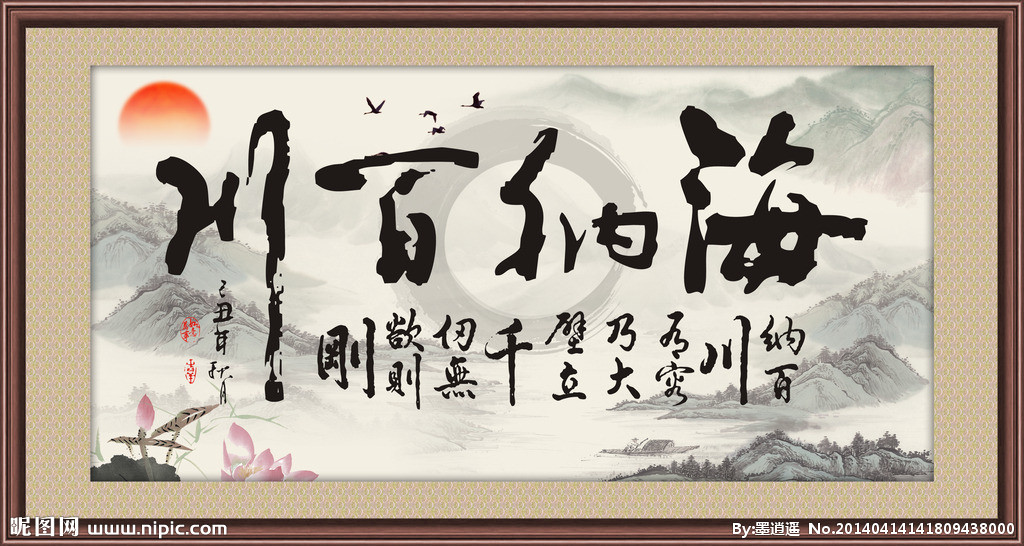 海纳百川
纳百
川
有容
乃大
壁立
千
仞無
欲則
剛
己丑年秋月
昵图网 www.nipic.com
By:墨逍遥 No.20140414141809438000